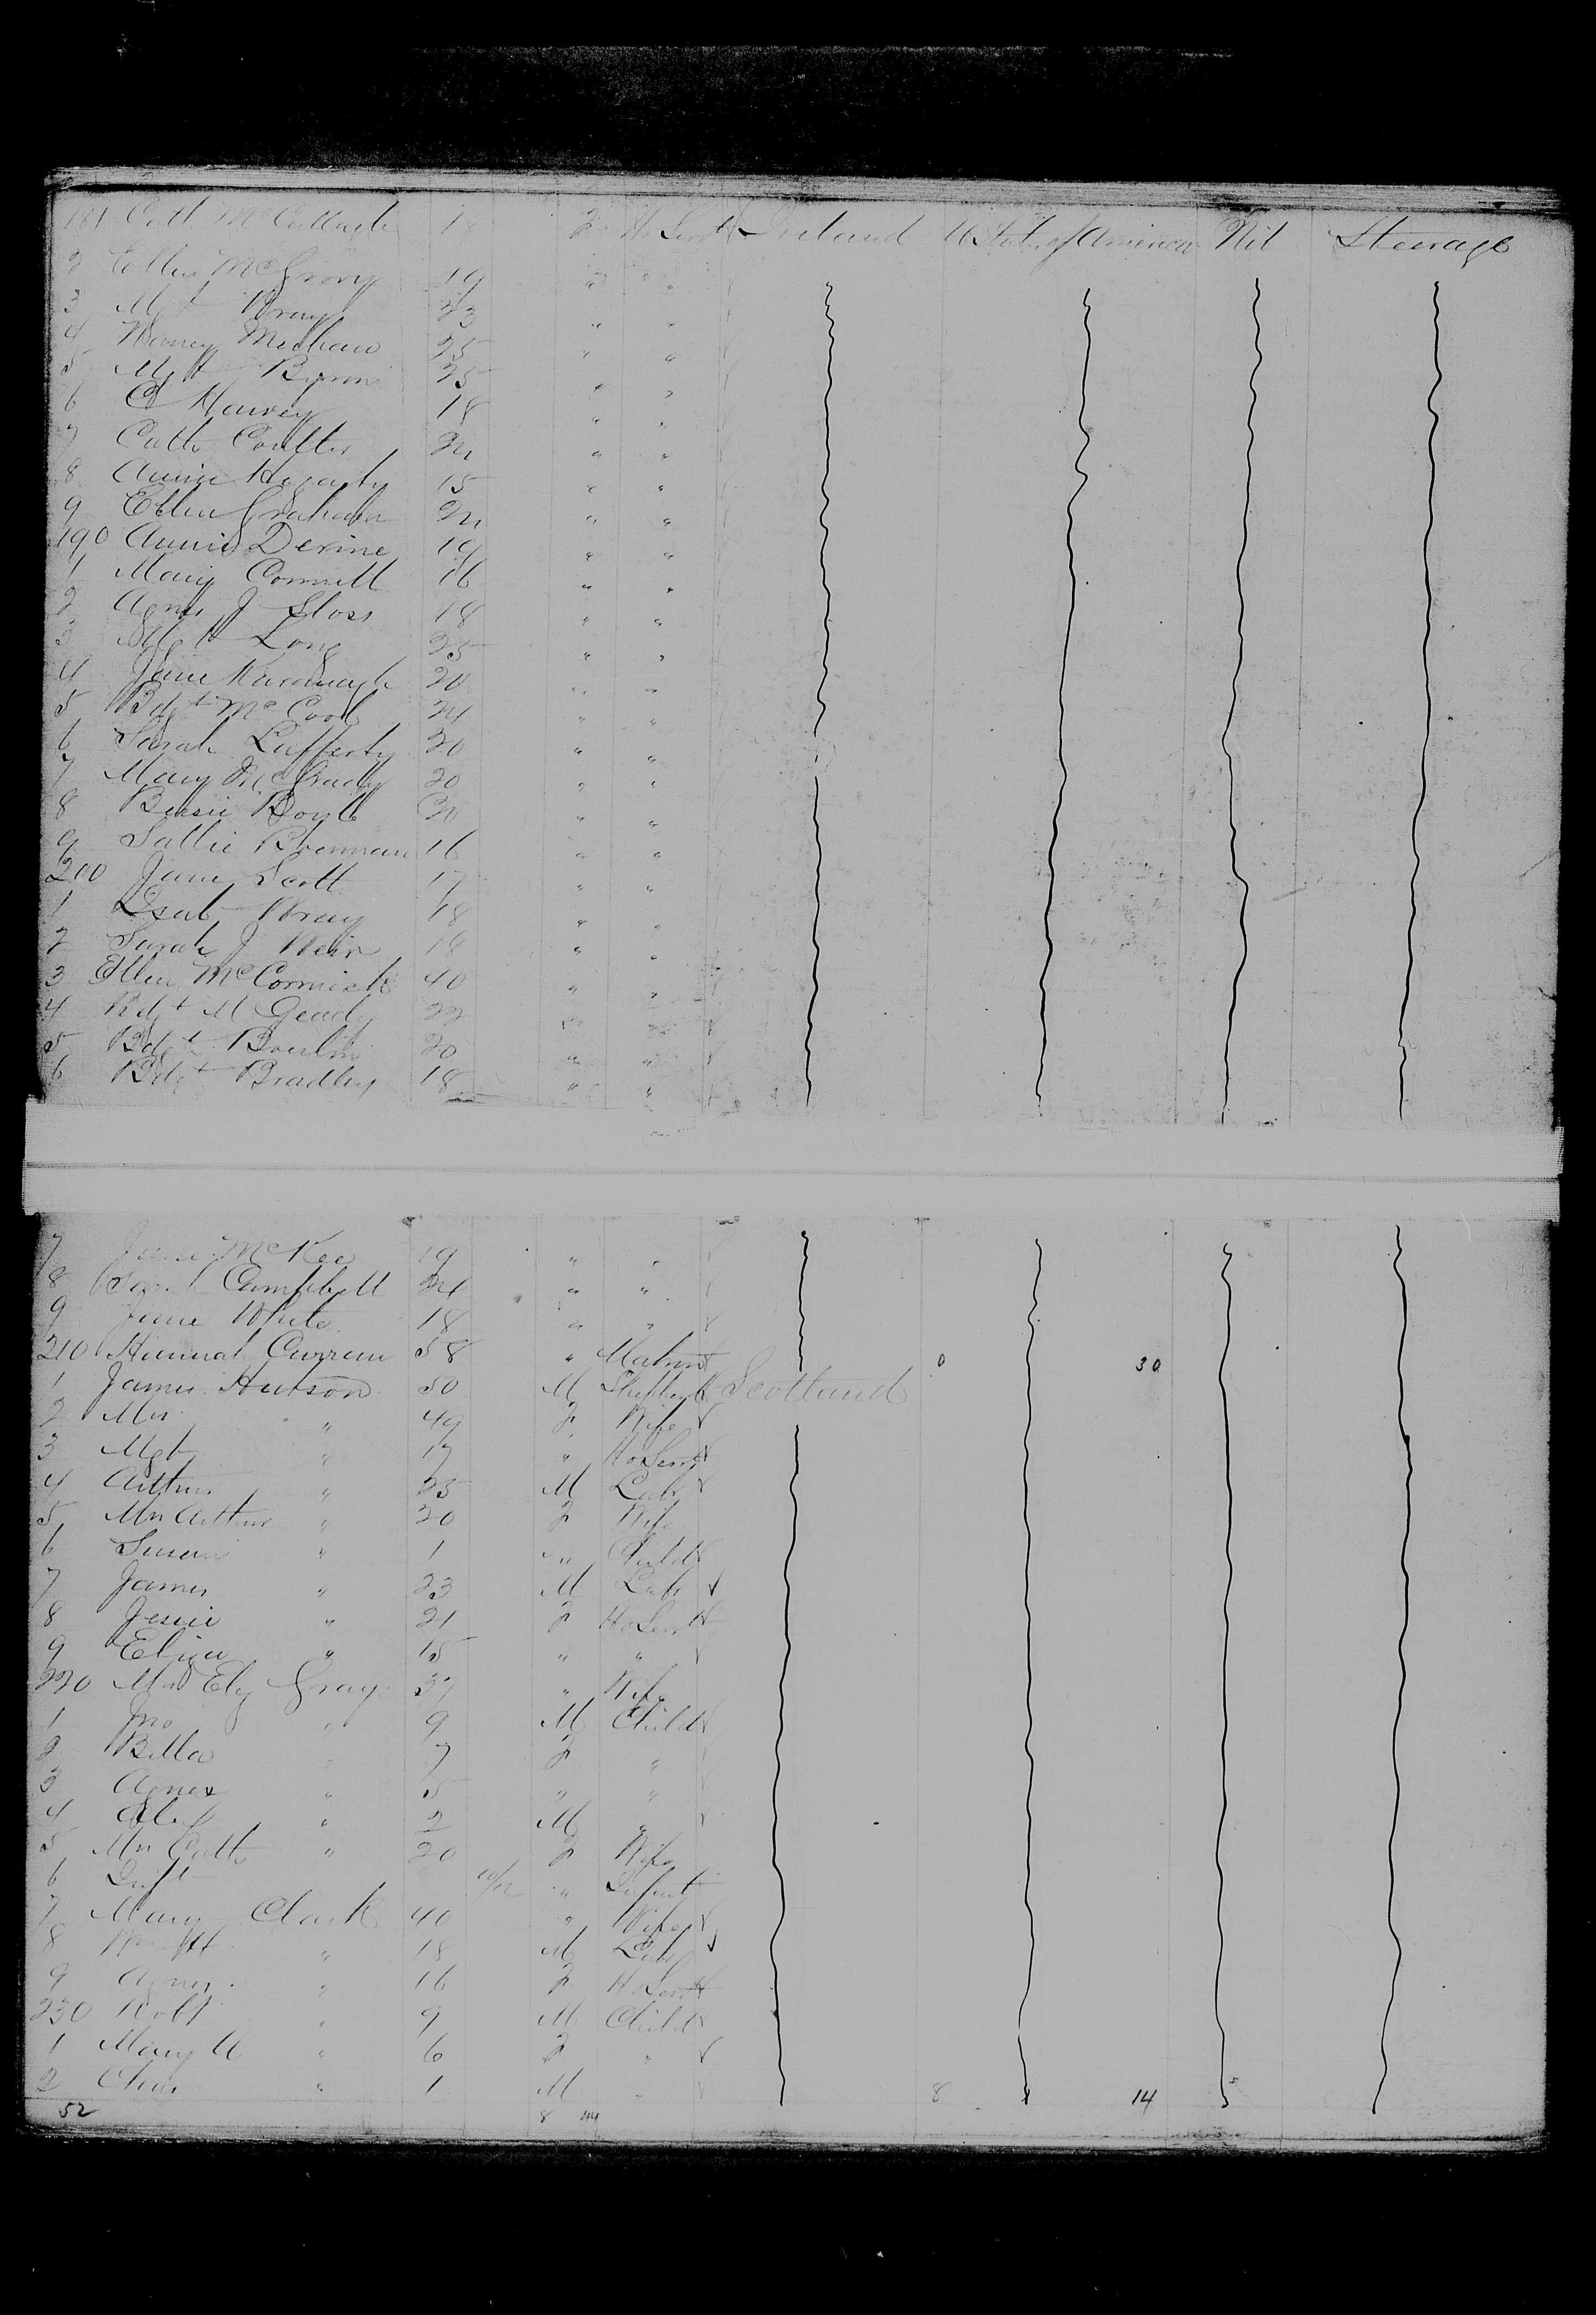 181 Cath McCullagh 18 F Ho Servt Ireland U State of America Nil Steerage
2 Ellen McGrory 19 " "
3 Mgt Wray 23 " "
4 Nancy Meehan 25 " "
5 Mgt Byrne 25 " "
6 C Harvey 18 " "
7 Cath Coulter 24 " "
8 Annie Hegarty 15 " "
9 Ellen Graham 24 " "
190 Annie Devine 19 " "
1 Mary Connell 16 " "
2 Agnes J Sloss 18 " "
3 Mgt Long 25 " "
4 Jane Kavanagh 20 " "
5 Bdgt McCool 24 " "
6 Sarah Lafferty 20 " "
7 Mary McGrady 20 " "
8 Bessie Boyle 20 " "
9 Sallie Brennan 16 " "
200 Jane Scott 17 " "
1 Isab Wray 18 " "
2 Sarah J Weir 18 " "
3 Ellen McCormick 40 " "
4 Bdgt M Geady 22 " "
5 Bdgt 20 " "
6 Bdgt Bradley 18 " "
7 Jane McKee 19 " "
8 Sarah Campbell 24 " "
9 Jane White 18 " "
210 Hannah Curran 58 " Matron 0 30
1 James Hutson 50 M Scotland
2 Mrs " 49 F Wife
3 Mgt " 17 " Ho Servt
4 Arthur " 25 M Labr
5 Mrs Arthur " 20 F Wife
6 Susan " 1 " Child
7 James " 23 M Labr
8 Jessie " 21 F Ho Servt
9 Eliza " 15 " "
220 Mrs Elz Gray 37 " Wife
1 Jno " 9 M Child
2 Bella " 7 F "
3 Agnes " 5 " "
4 Alex " 2 M "
5 Mrs Cath " 20 F Wife
6 Inft 10/12 " Infant
7 Mary Clark 40 " Wife
8 Wm H " 18 M Labr
9 Agnes " 16 F Ho Servt
230 Robt " 9 M Child
1 Mary A " 6 F "
2 Chas " 1 M " 8 14
52 8 44